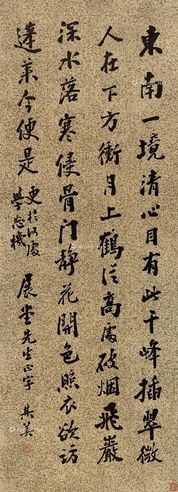 東南一境清心目有此千峰插翠微
人在下方衝月上鶴從高處破烟飛巖
深水落寒侵骨門靜花開色照衣欲訪
蓬萊今便是更於何處
學忘機
展堂先生正字 其美